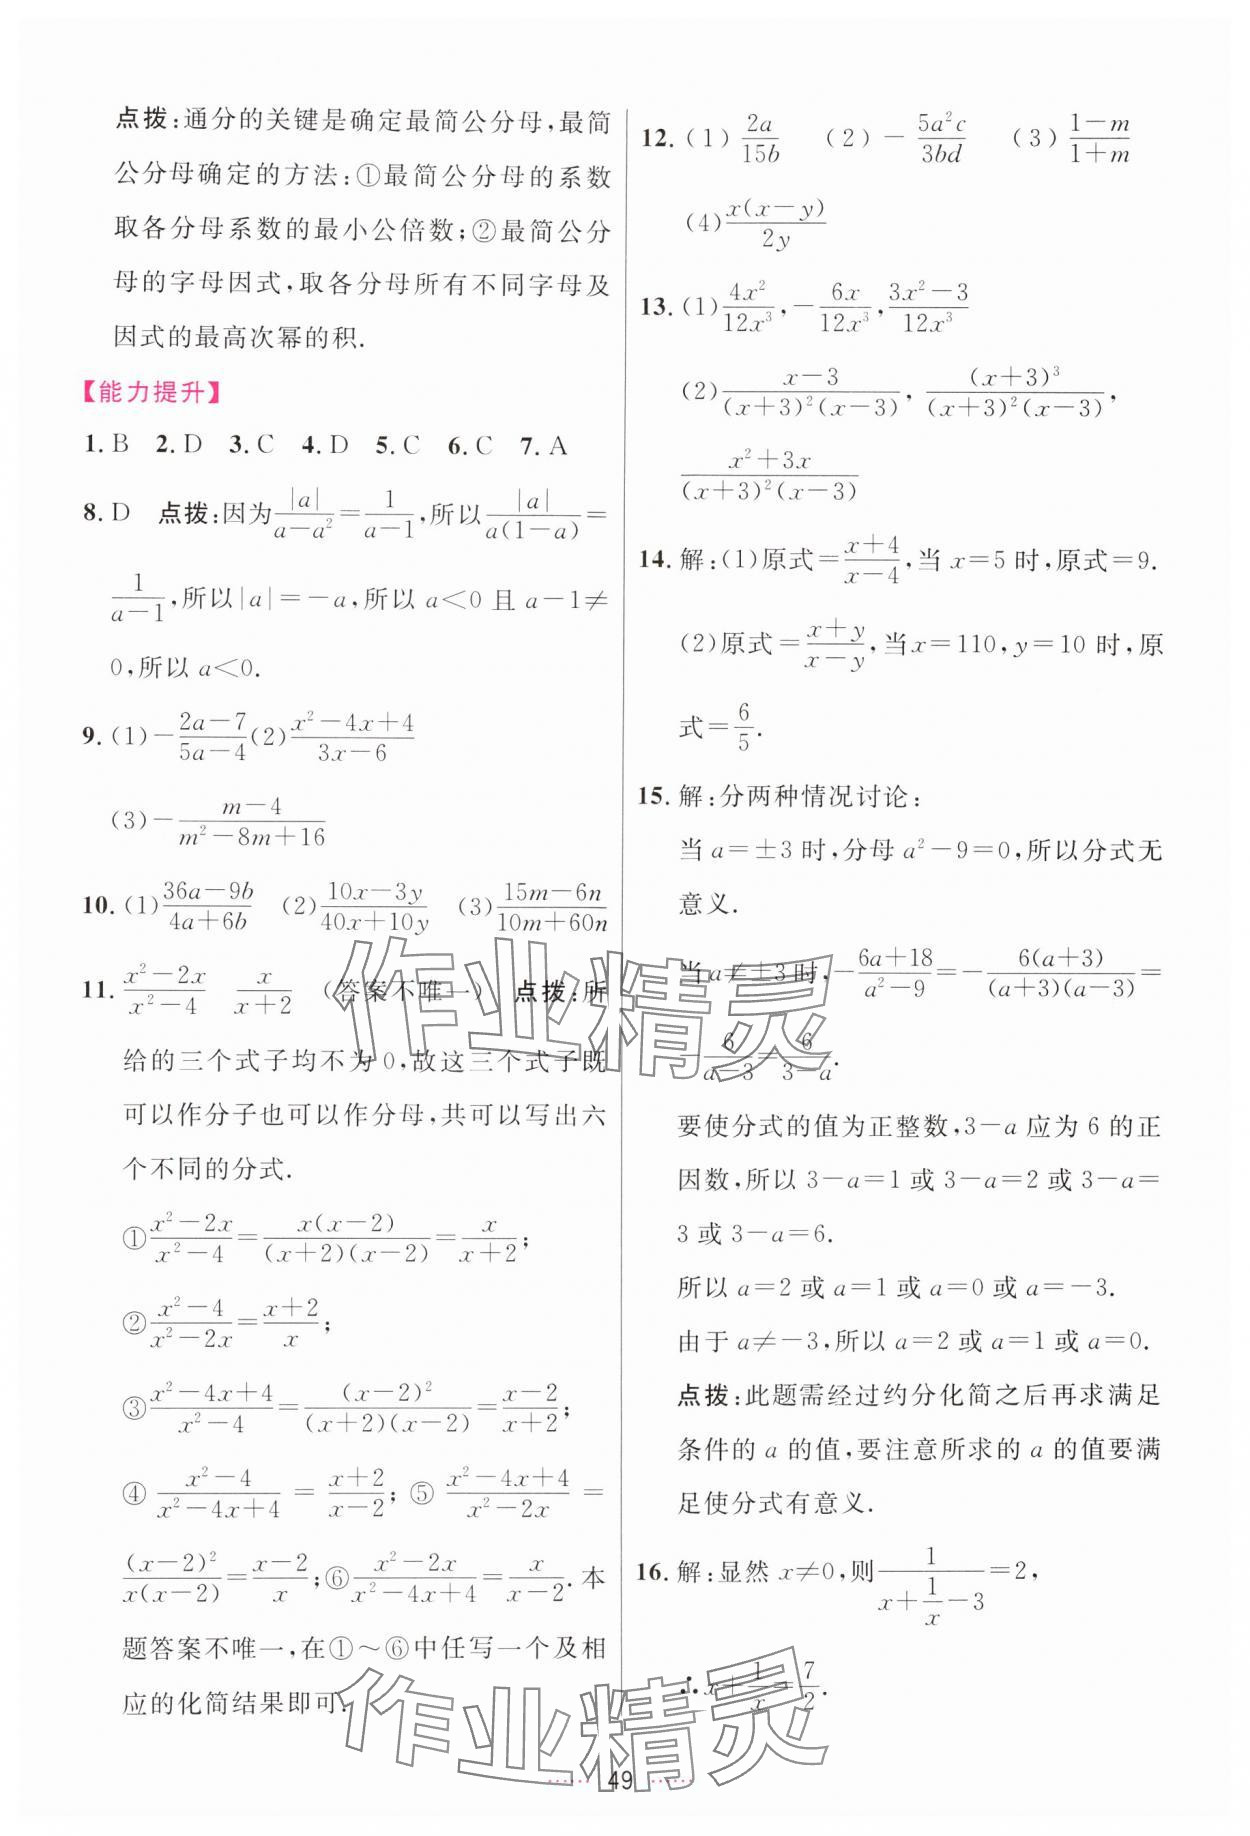 点拨:通分的关键是确定最简公分母,最简
公分母确定的方法:①最简公分母的系数
取各分母系数的最小公倍数;②最简公分
母的字母因式,取各分母所有不同字母及
因式的最高次幂的积.
【能力提升】
1. B 2. D 3. C 4. D 5. C 6. C 7. A
8. D 点拨:因为|a|/(a-a²)=1/(a-1),所以|a|/(a(1-a))=
1/(a-1),所以|a|=-a,所以 a<0 且 a-1≠
0,所以 a<0.
9. (1)-(2a-7)/(5a-4) (2)(x²-4x+4)/(3x-6)
(3)-(m-4)/(m²-8m+16)
10. (1)(36a-9b)/(4a+6b) (2)(10x-3y)/(40x+10y) (3)(15m-6n)/(10m+60n)
11. (x²-2x)/(x²-4) x/(x+2) (答案不唯一) 点拨:所
给的三个式子均不为 0,故这三个式子既
可以作分子也可以作分母,共可以写出六
个不同的分式.
①(x²-2x)/(x²-4)=x(x-2)/((x+2)(x-2))=x/(x+2);
②(x²-4)/(x²-2x)=(x+2)/x;
③(x²-4x+4)/(x²-4)=(x-2)²/((x+2)(x-2))=(x-2)/(x+2);
④(x²-4)/(x²-4x+4)=(x+2)/(x-2);⑤(x²-4x+4)/(x²-2x)=
(x-2)²/(x(x-2))=(x-2)/x;⑥(x²-2x)/(x²-4x+4)=x/(x-2).本
题答案不唯一,在①~⑥中任写一个及相
应的化简结果即可.
12. (1)2a/15b (2)-5a²c/3bd (3)(1-m)/(1+m)
(4)x(x-y)/2y
13. (1)4x²/12x³,-6x/12x³,(3x²-3)/12x³
(2)(x-3)/((x+3)²(x-3)),(x+3)³/((x+3)²(x-3)),
(x²+3x)/((x+3)²(x-3))
14. 解:(1)原式=(x+4)/(x-4),当 x=5 时,原式=9.
(2)原式=(x+y)/(x-y),当x=110,y=10 时,原
式=6/5.
15. 解:分两种情况讨论:
当 a=±3 时,分母 a²-9=0,所以分式无
意义.
当a≠±3时,-(6a+18)/(a²-9)=-6(a+3)/((a+3)(a-3))=
-6/(a-3)=6/(3-a).
要使分式的值为正整数,3-a 应为 6 的正
因数,所以 3-a=1 或 3-a=2 或 3-a=
3 或 3-a=6.
所以 a=2 或 a=1 或 a=0 或 a=-3.
由于 a≠-3,所以 a=2 或 a=1 或 a=0.
点拨:此题需经过约分化简之后再求满足
条件的 a 的值,要注意所求的 a 的值要满
足使分式有意义.
16. 解:显然 x≠0,则1/(x+1/x-3)=2,
∴x+1/x=7/2.
作业精灵
作业精灵
49